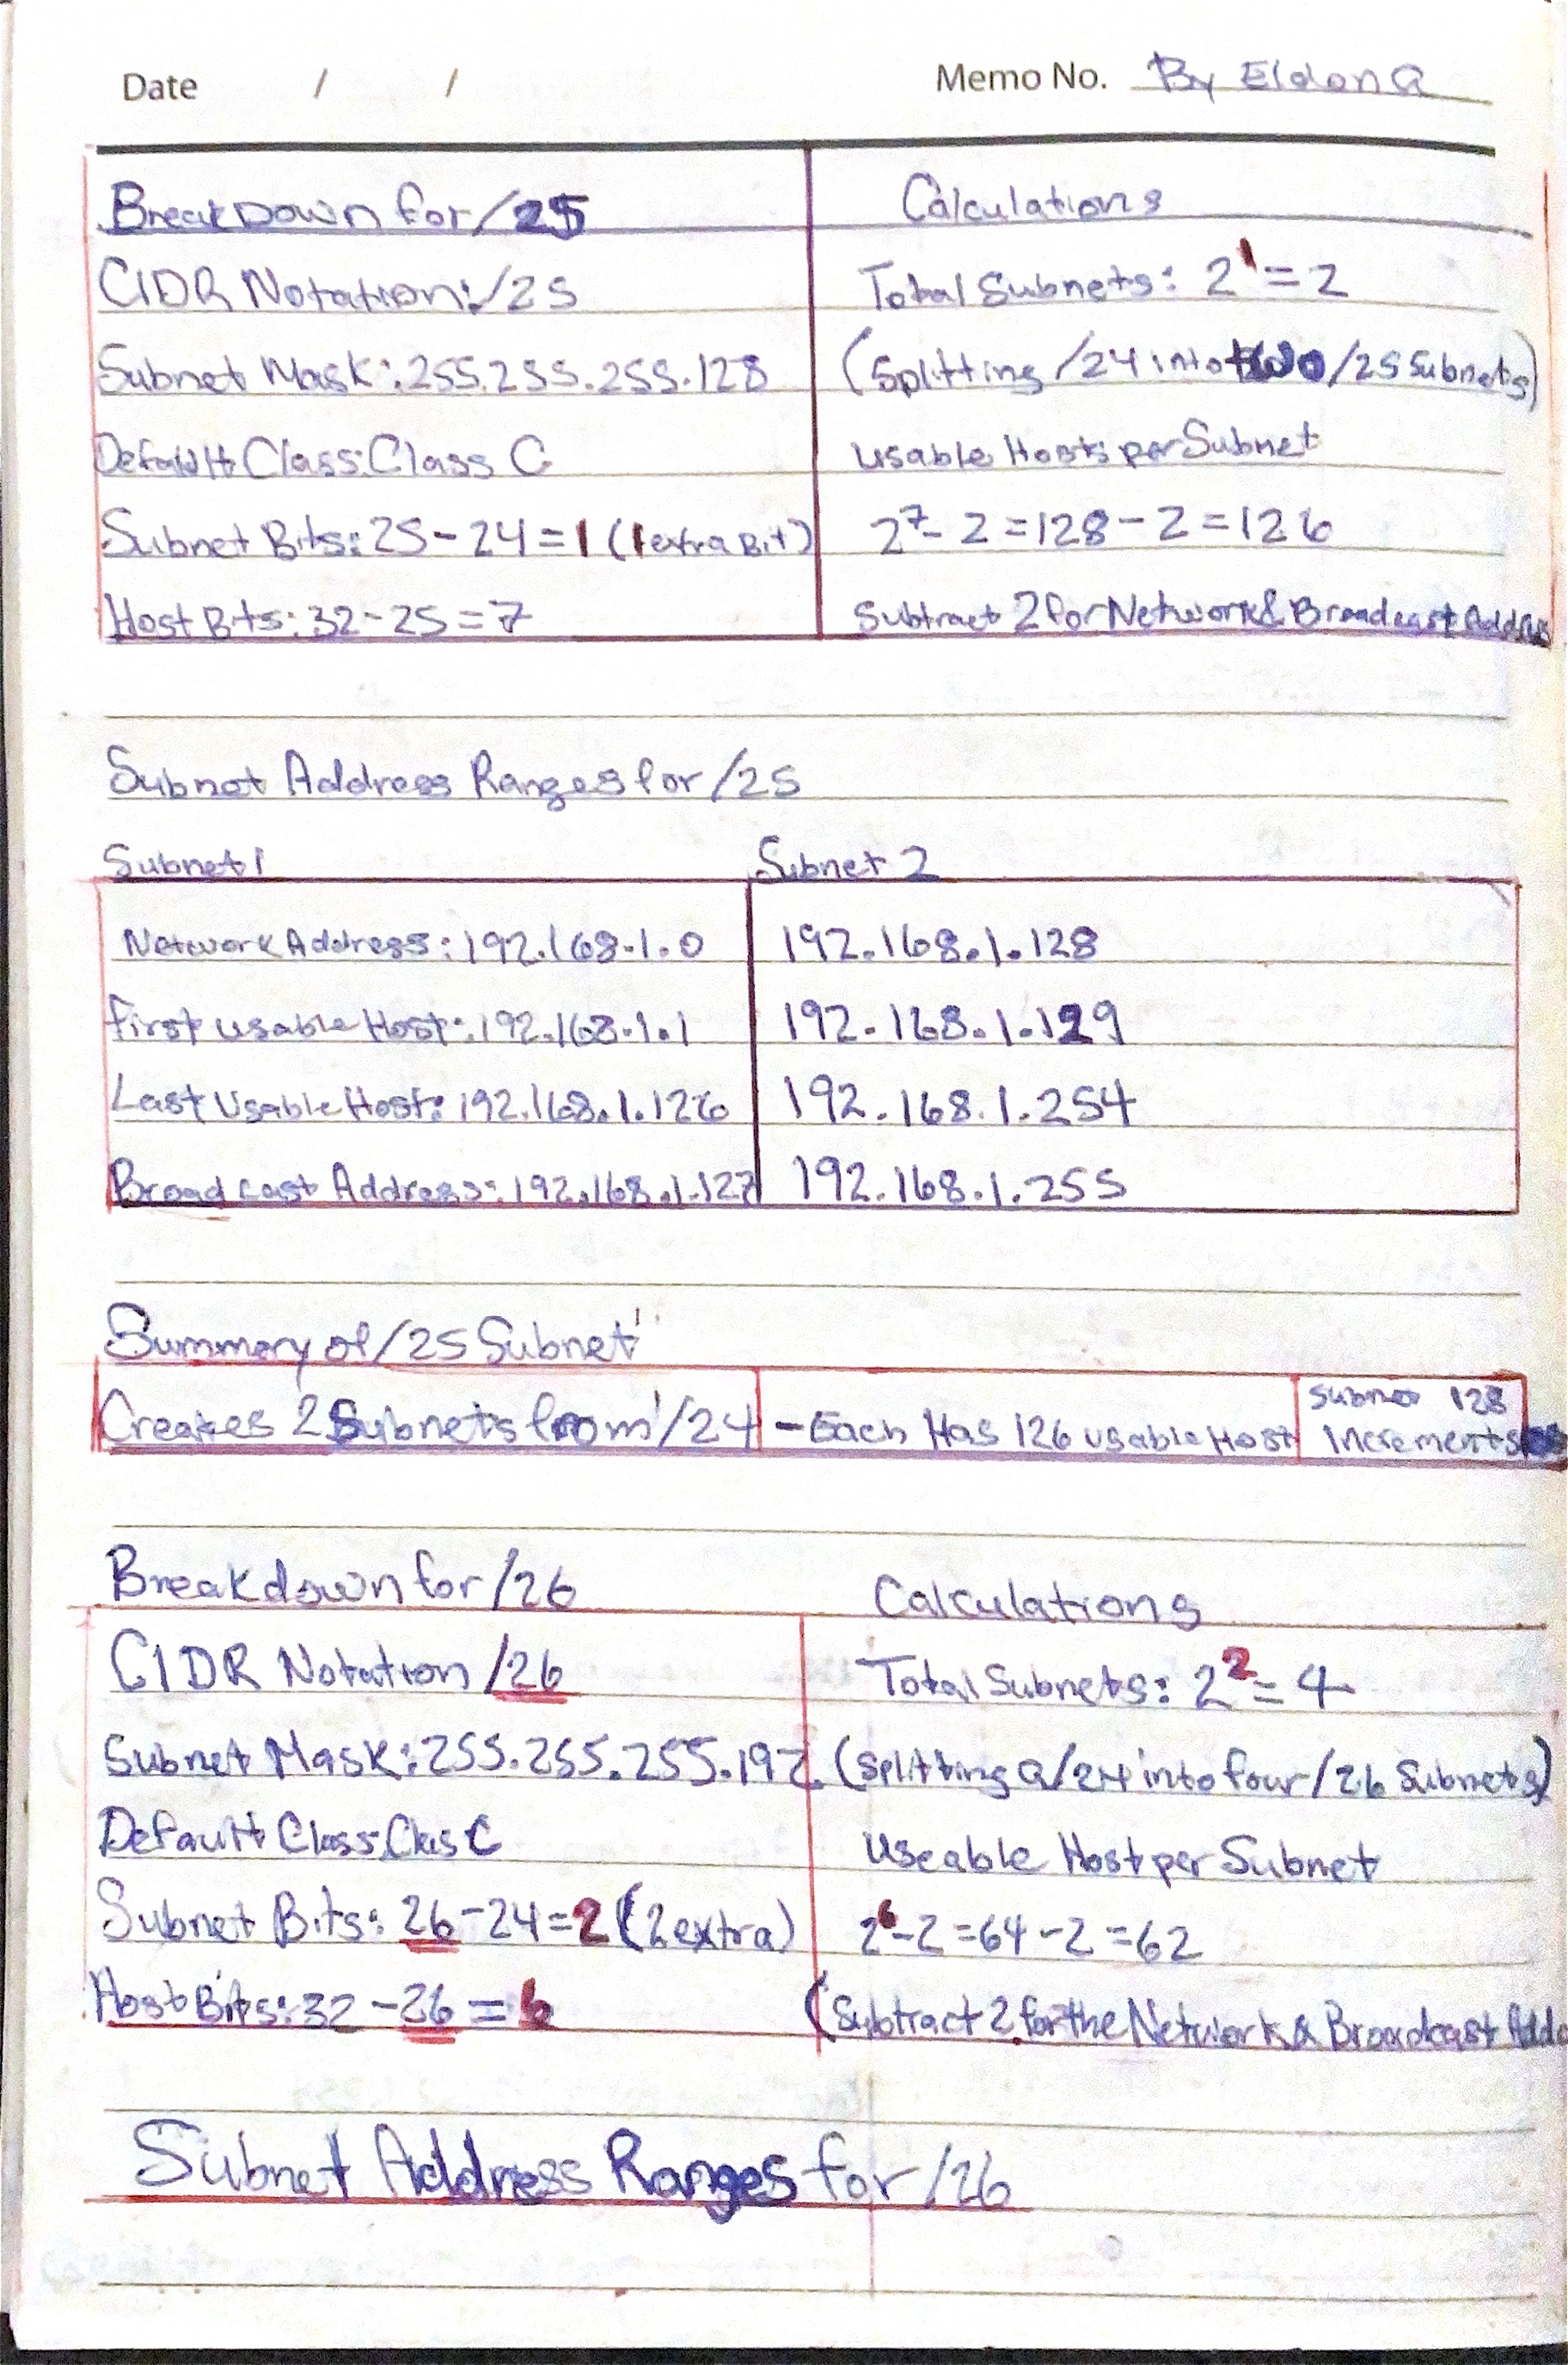 Date / / Memo No. By Eldon G
Breakdown for /25
Calculations
CIDR Notation: /25
Total Subnets: 2¹ = 2
Subnet Mask: 255.255.255.128
(Splitting /24 into two /25 Subnets)
Default Class: Class C
Usable Hosts per Subnet
Subnet Bits: 25 - 24 = 1 (1 extra Bit)
2⁷ - 2 = 128 - 2 = 126
Host Bits: 32 - 25 = 7
Subtract 2 for Network & Broadcast Address
Subnet Address Ranges for /25
Subnet 1
Subnet 2
Network Address: 192.168.1.0
192.168.1.128
First usable Host: 192.168.1.1
192.168.1.129
Last Usable Host: 192.168.1.126
192.168.1.254
Broadcast Address: 192.168.1.127
192.168.1.255
Summary of /25 Subnet
Creates 2 Subnets from /24
- Each Has 126 usable Host
Subnet 128
Increments
Breakdown for /26
Calculations
CIDR Notation /26
Total Subnets: 2² = 4
Subnet Mask: 255.255.255.192
(Splitting a /24 into four /26 Subnets)
Default Class: Clas C
Useable Host per Subnet
Subnet Bits: 26 - 24 = 2 (2 extra)
2⁶ - 2 = 64 - 2 = 62
Host Bits: 32 - 26 = 6
(Subtract 2 for the Network & Broadcast Add
Subnet Address Ranges for /26